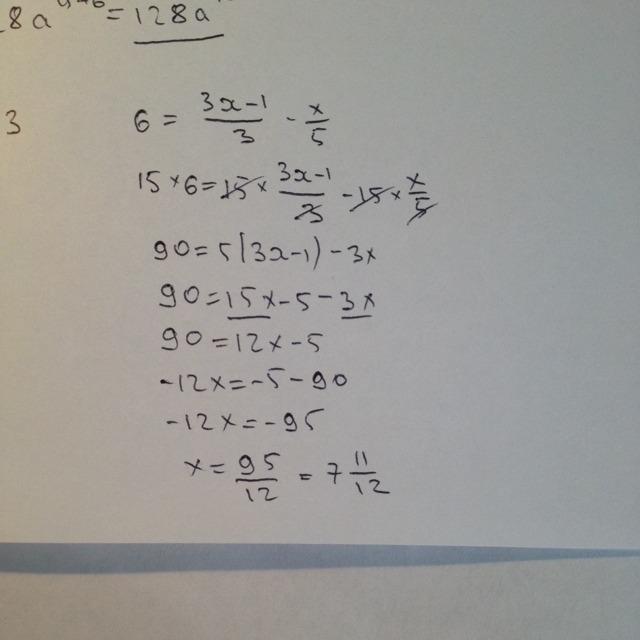 8a = 128a
3 6 = 3x-1/3 - x/5
15 × 6 = 15 × 3x-1/3 - 15 × x/5
90 = 5(3x-1) - 3x
90 = 15x - 5 - 3x
90 = 12x - 5
-12x = -5 - 90
-12x = -95
x = 95/12 = 7 11/12